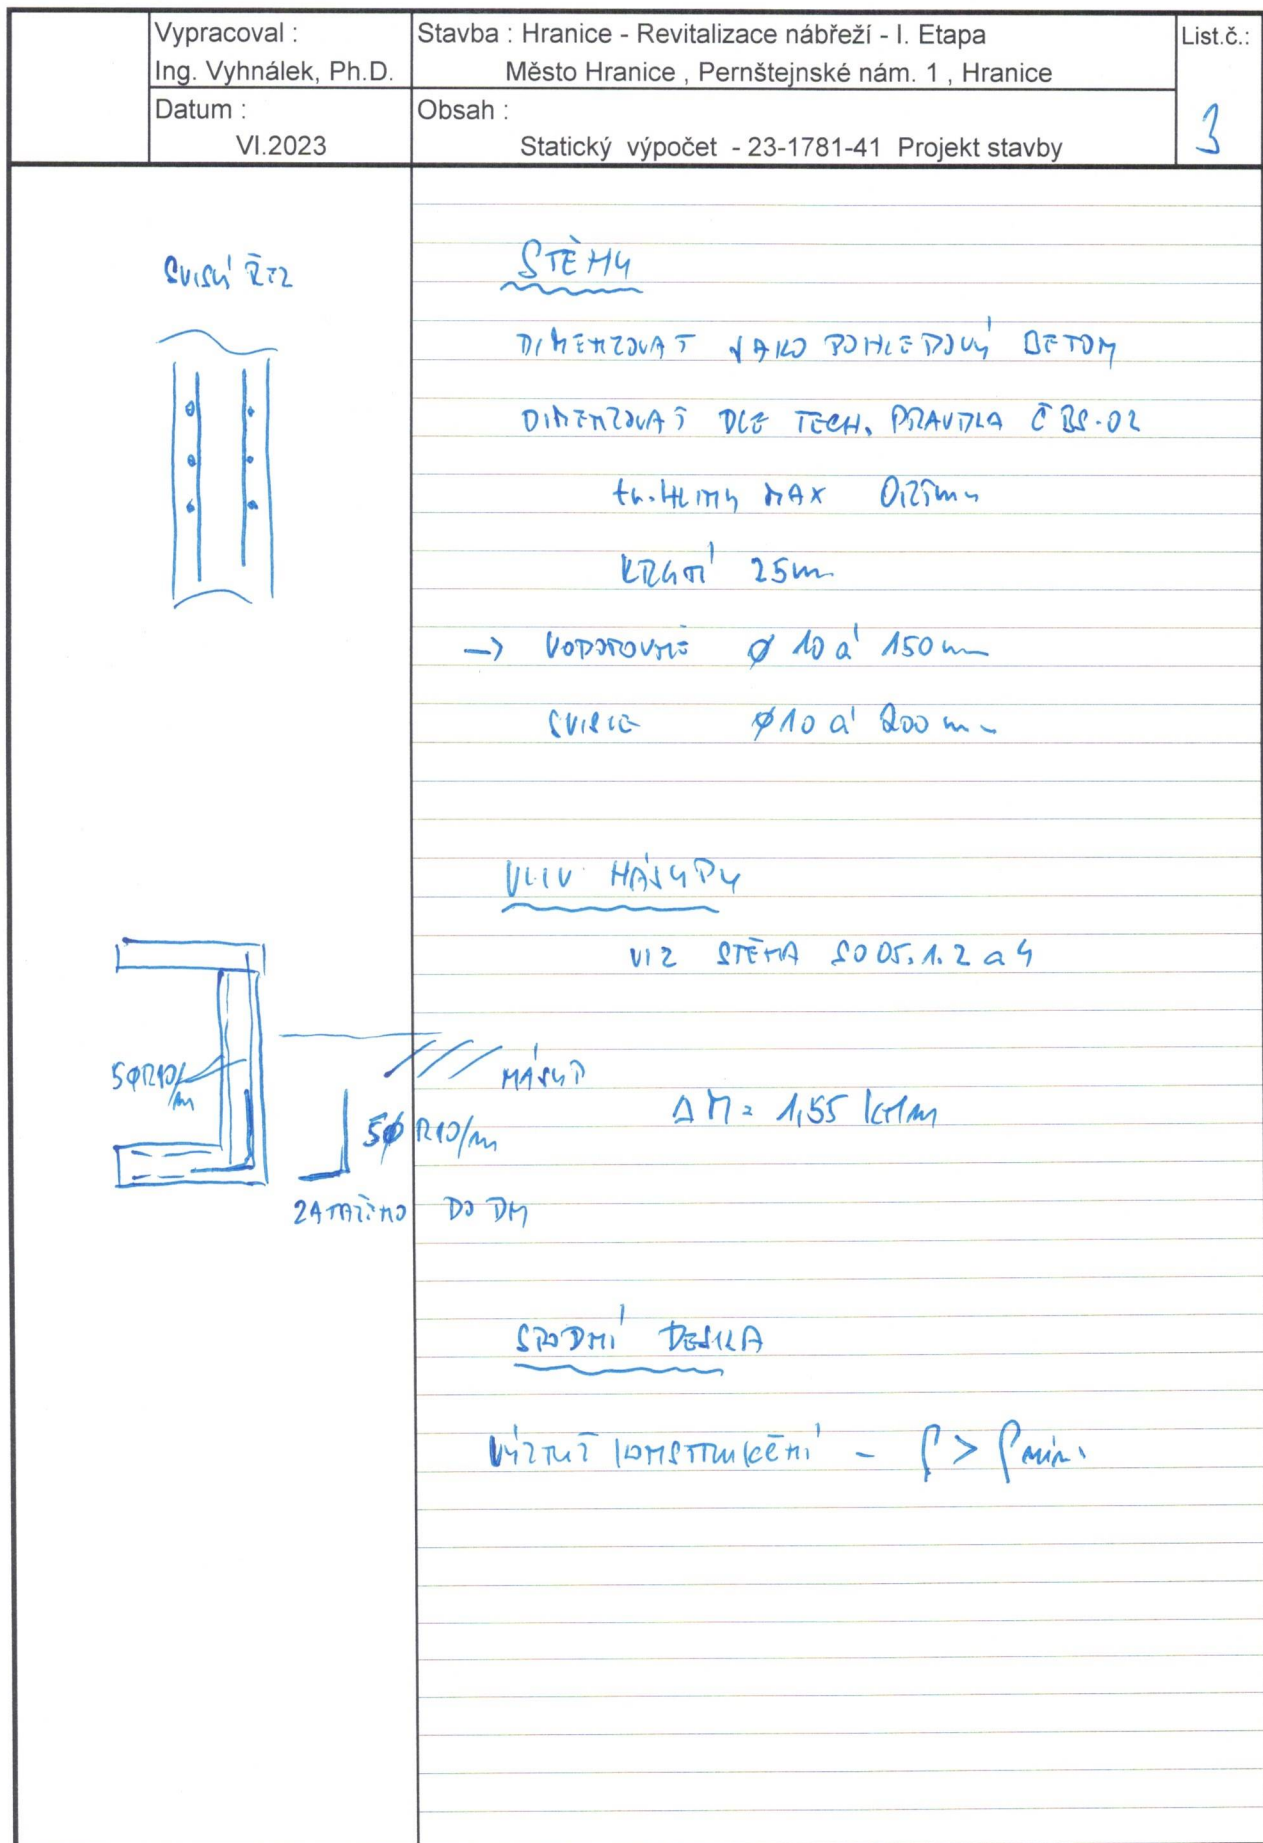 Vypracoval :
Ing. Vyhnálek, Ph.D.
Stavba : Hranice - Revitalizace nábřeží - I. Etapa
Město Hranice , Pernštejnské nám. 1 , Hranice
List.č.:
3
Datum :
VI.2023
Obsah :
Statický výpočet - 23-1781-41 Projekt stavby
SVISLÝ ŘEZ
STĚNY
DIMENZOVAT JAKO POHLEDOVÝ BETON
DIMENZOVAT DLE TECH. PRAVIDLA ČBS-02
MAX 0,25mm
KRYTÍ 25mm
→ VODOROVNĚ Ø 10 á 150 mm
SVISLE Ø10 á 200 mm
VLIV NÁSYPU
VIZ STĚNA SO 05.1.2 a 4
5ØR10/m
NÁSYP
ΔM = 1,55 kNm
5Ø R10/m
ZATAŽENO DO DN
SPODNÍ DESKA
VÝZTUŽ KONSTRUKČNÍ - ρ > ρmin.